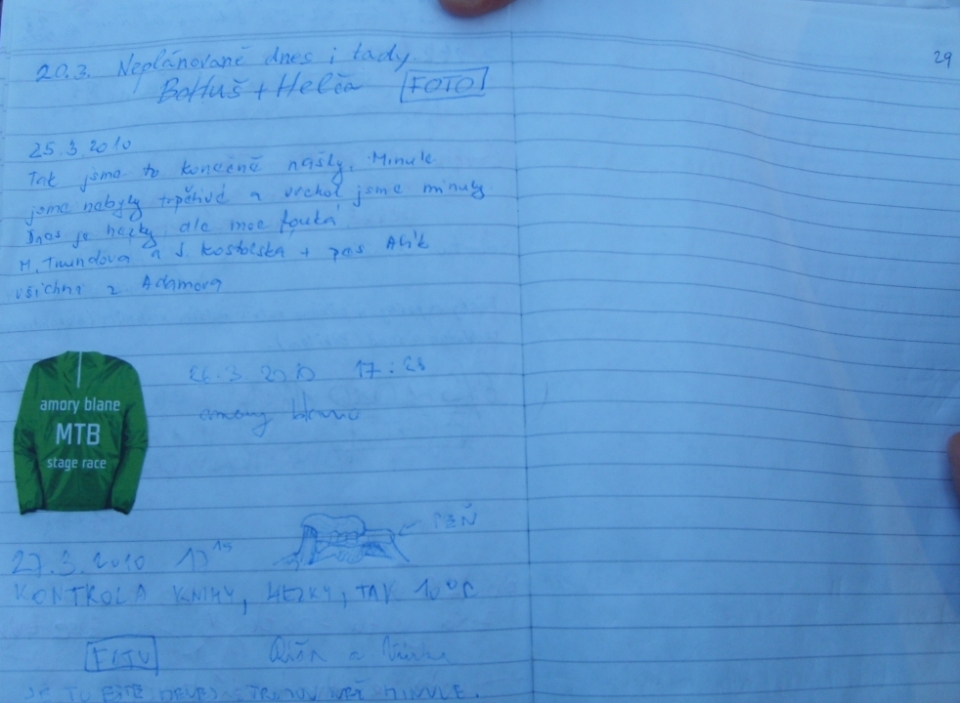 20.3. Neplánovaně dnes i tady
BoHuš + Helča FOTO
29
25.3.2010
Tak jsme to konečně našly. Minule
jsme nabyly trpělivé a vrchol jsme minuly
Dnes je hezky, ale moc fouká
a J. Kostolská + pes
všichni z Adamova
amory blane
MTB
stage race
26.3.2010 17:23
amory blane
27.3.2010
KONTROLA KNIHY, HEZKY, TAK 10°C
a
JE TU MINULE.